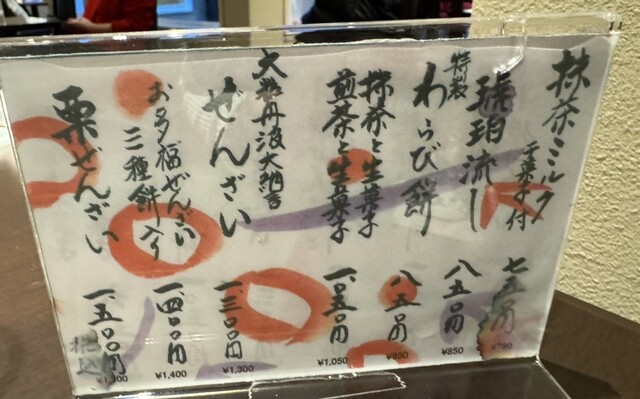 抹茶ミルク
干菓子付
琥珀流し
特製
わらび餅
抹茶と生菓子
煎茶と生菓子
大粒丹波大納言
ぜんざい
お多福ぜんざい
三種餅入り
栗ぜんざい
七五〇円
八五〇円
¥850
八五〇円
¥850
一、〇五〇円
¥1,050
一、三〇〇円
¥1,300
一、四〇〇円
¥1,400
一、五〇〇円
税込